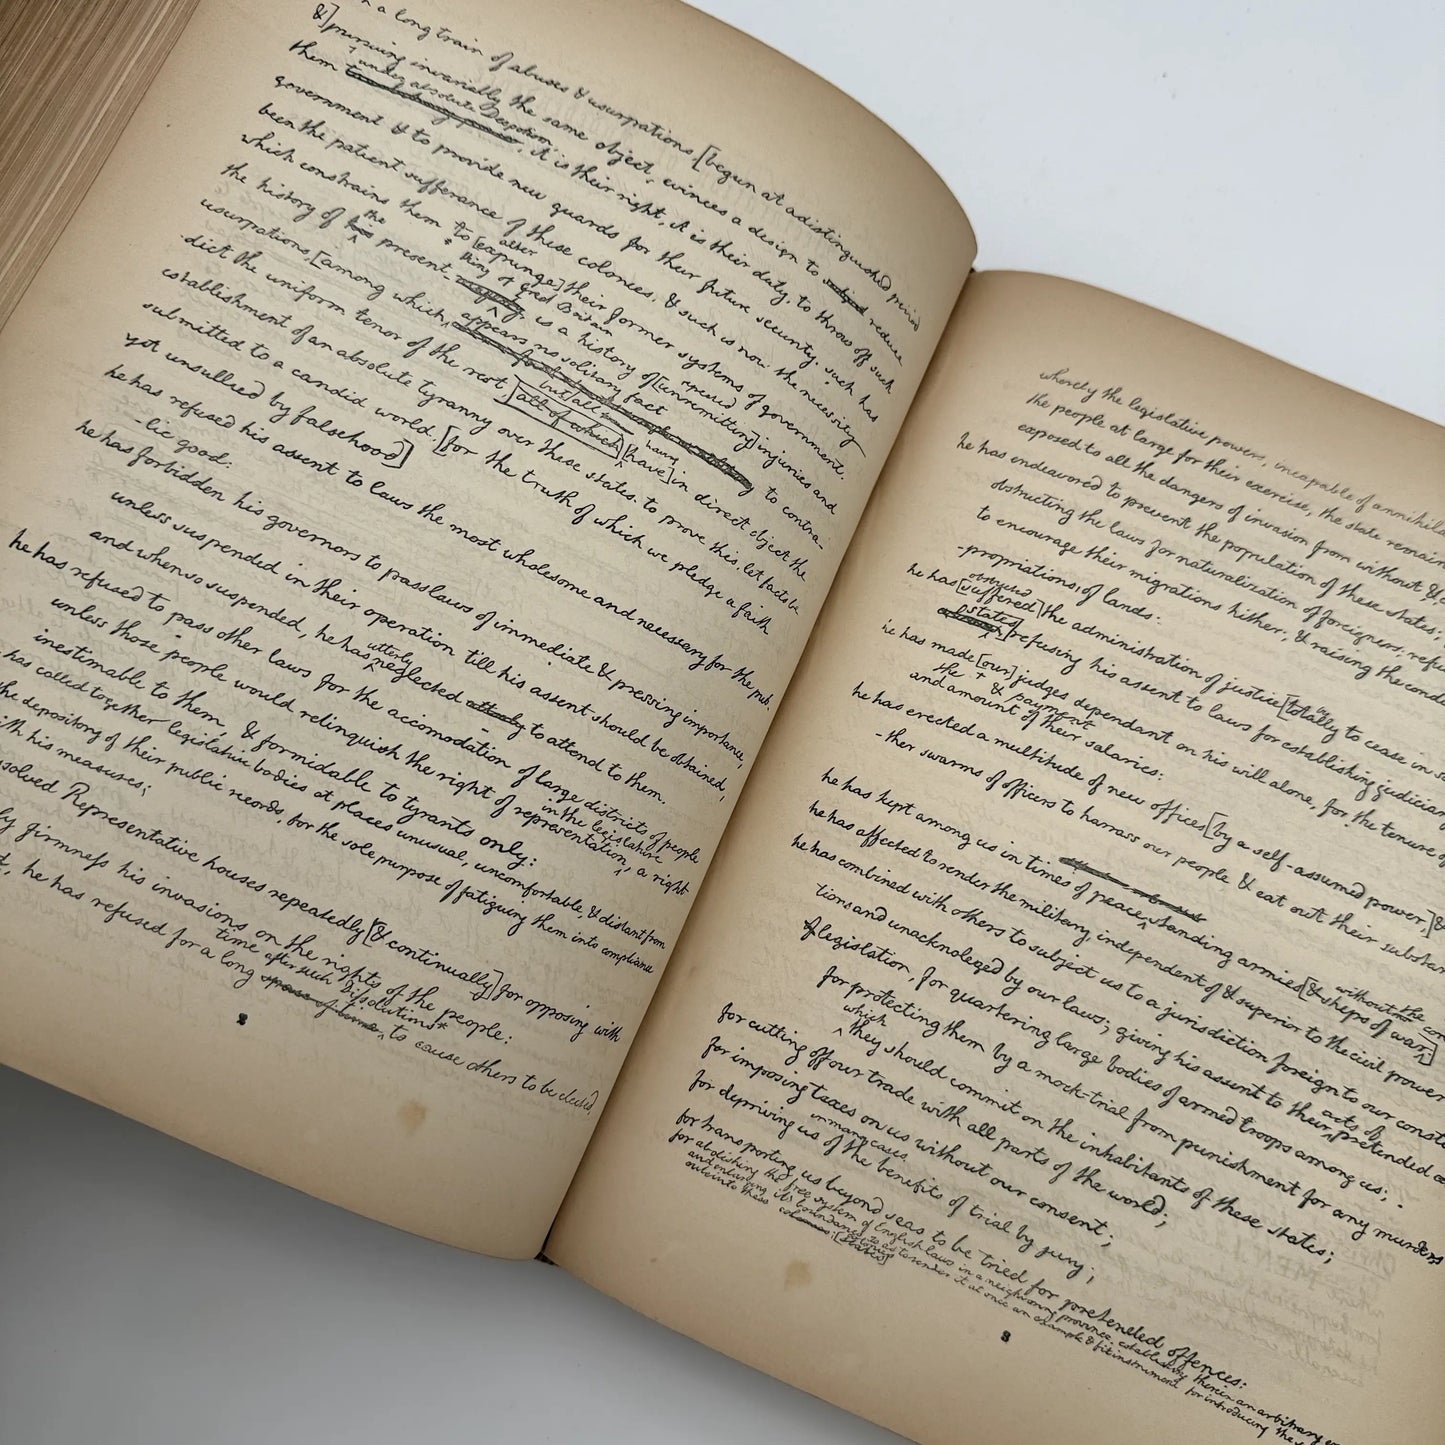 a long train of abuses & usurpations [begun at a distinguished period
&] pursuing invariably the same object, evinces a design to subject reduce
them under absolute Despotism, it is their right, it is their duty, to throw off such
government & to provide new guards for their future security. such has
been the patient sufferance of these colonies, & such is now the necessity
which constrains them to [expunge] alter their former systems of government.
the history of his the present king of Great Britain is a history of [unremitting] repeated injuries and
usurpations, [among which, appears no solitary fact to contra-
-dict the uniform tenor of the rest, [all of which] but all [have] having in direct object the
establishment of an absolute tyranny over these states. to prove this, let facts be
submitted to a candid world. [for the truth of which we pledge a faith
yet unsullied by falsehood]
he has refused his assent to laws the most wholesome and necessary for the pub-
-lic good:
he has forbidden his governors to pass laws of immediate & pressing importance,
unless suspended in their operation till his assent should be obtained,
and when so suspended, he has utterly neglected utterly to attend to them.
he has refused to pass other laws for the accomodation of large districts of people
unless those people would relinquish the right of representation in the legislature, a right
inestimable to them, & formidable to tyrants only:
has called together legislative bodies at places unusual, uncomfortable, & distant from
the depository of their public records, for the sole purpose of fatiguing them into compliance
with his measures;
Representative houses repeatedly [& continually] for opposing with
firmness his invasions on the rights of the people:
he has refused for a long time after such Dissolutions* space of time, to cause others to be elected,
whereby the legislative powers, incapable of
the people at large for their exercise, the state
exposed to all the dangers of invasion from without &
he has endeavored to prevent the population of these states;
obstructing the laws for naturalization of foreigners;
to encourage their migrations hither; & raising the
-propriations of lands:
he has [suffered] the administration of justice [totally to cease in
states] refusing his assent to laws for establishing
he has made [our] judges dependant on his will alone, for the tenure of
the + & payment
and amount of their salaries:
he has erected a multitude of new offices [by a self-assumed power,] &
-ther swarms of officers to harrass our people & eat out their
he has kept among us in times of peace, standing armies [& ships of war] without the
he has affected to render the military, independent of & superior to the civil power
he has combined with others to subject us to a jurisdiction foreign to our
tions and unacknoleged by our laws; giving his assent to their acts of pretended
legislation, for quartering large bodies of armed troops among us;
for protecting them by a mock-trial from punishment for any murders
which they should commit on the inhabitants of these states;
for cutting off our trade with all parts of the world;
for imposing taxes on us without our consent;
for depriving us in many cases of the benefits of trial by jury;
for transporting us beyond seas to be tried for pretended offences:
for abolishing the free system of English laws in a neighboring province, establishing therein an arbitrary
and enlarging it's boundaries so as to render it at once an example & fit instrument for introducing the
rule into these colonies; [states]